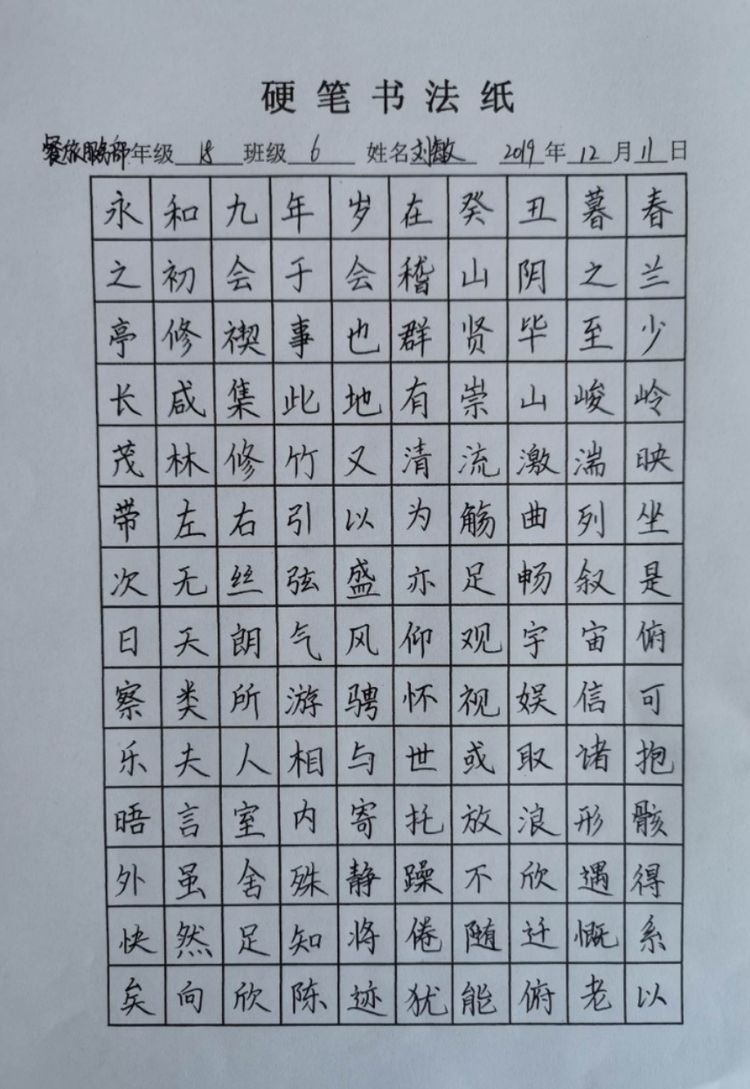 硬笔书法纸
餐旅服务部年级 18 班级 6 姓名 刘敏 2019年12月11日
永和九年岁在癸丑暮春
之初会于会稽山阴之兰
亭修禊事也群贤毕至少
长咸集此地有崇山峻岭
茂林修竹又清流激湍映
带左右引以为觞曲列坐
次无丝弦盛亦足畅叙是
日天朗气风仰观宇宙俯
察类所游骋怀视娱信可
乐夫人相与世或取诸抱
晤言室内寄托放浪形骸
外虽舍殊静躁不欣遇得
快然足知将倦随迁慨系
矣向欣陈迹犹能俯老以